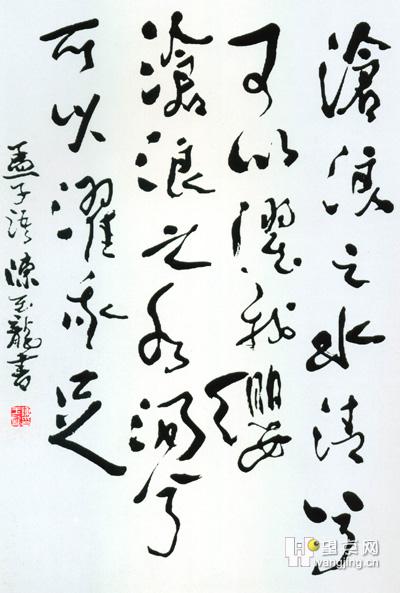 滄浪之水清兮
可以濯我纓
滄浪之水濁兮
可以濯我足
孟子語 陳玉龍書
望京网
wangjing.cn